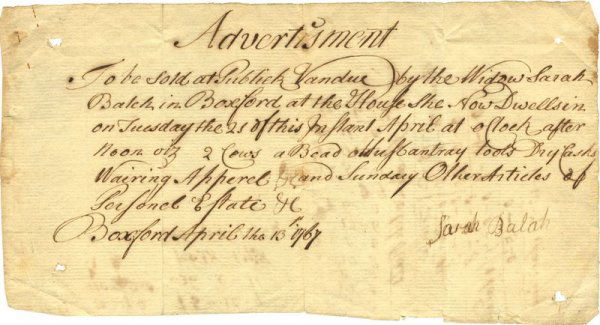 Advertisment
To be Sold at Publick Vandue by the Widow Sarah
Balch in Boxford at the House She Now Dwells in
on Tuesday the 21 of this Instant April at oClock after
Noon viz 2 Cows a Bead tools Dry Casks
Wairing Apperel &c and Sunday Other Articles of
Personel Estate &c
Boxford April the 13th 1767
Sarah Balch